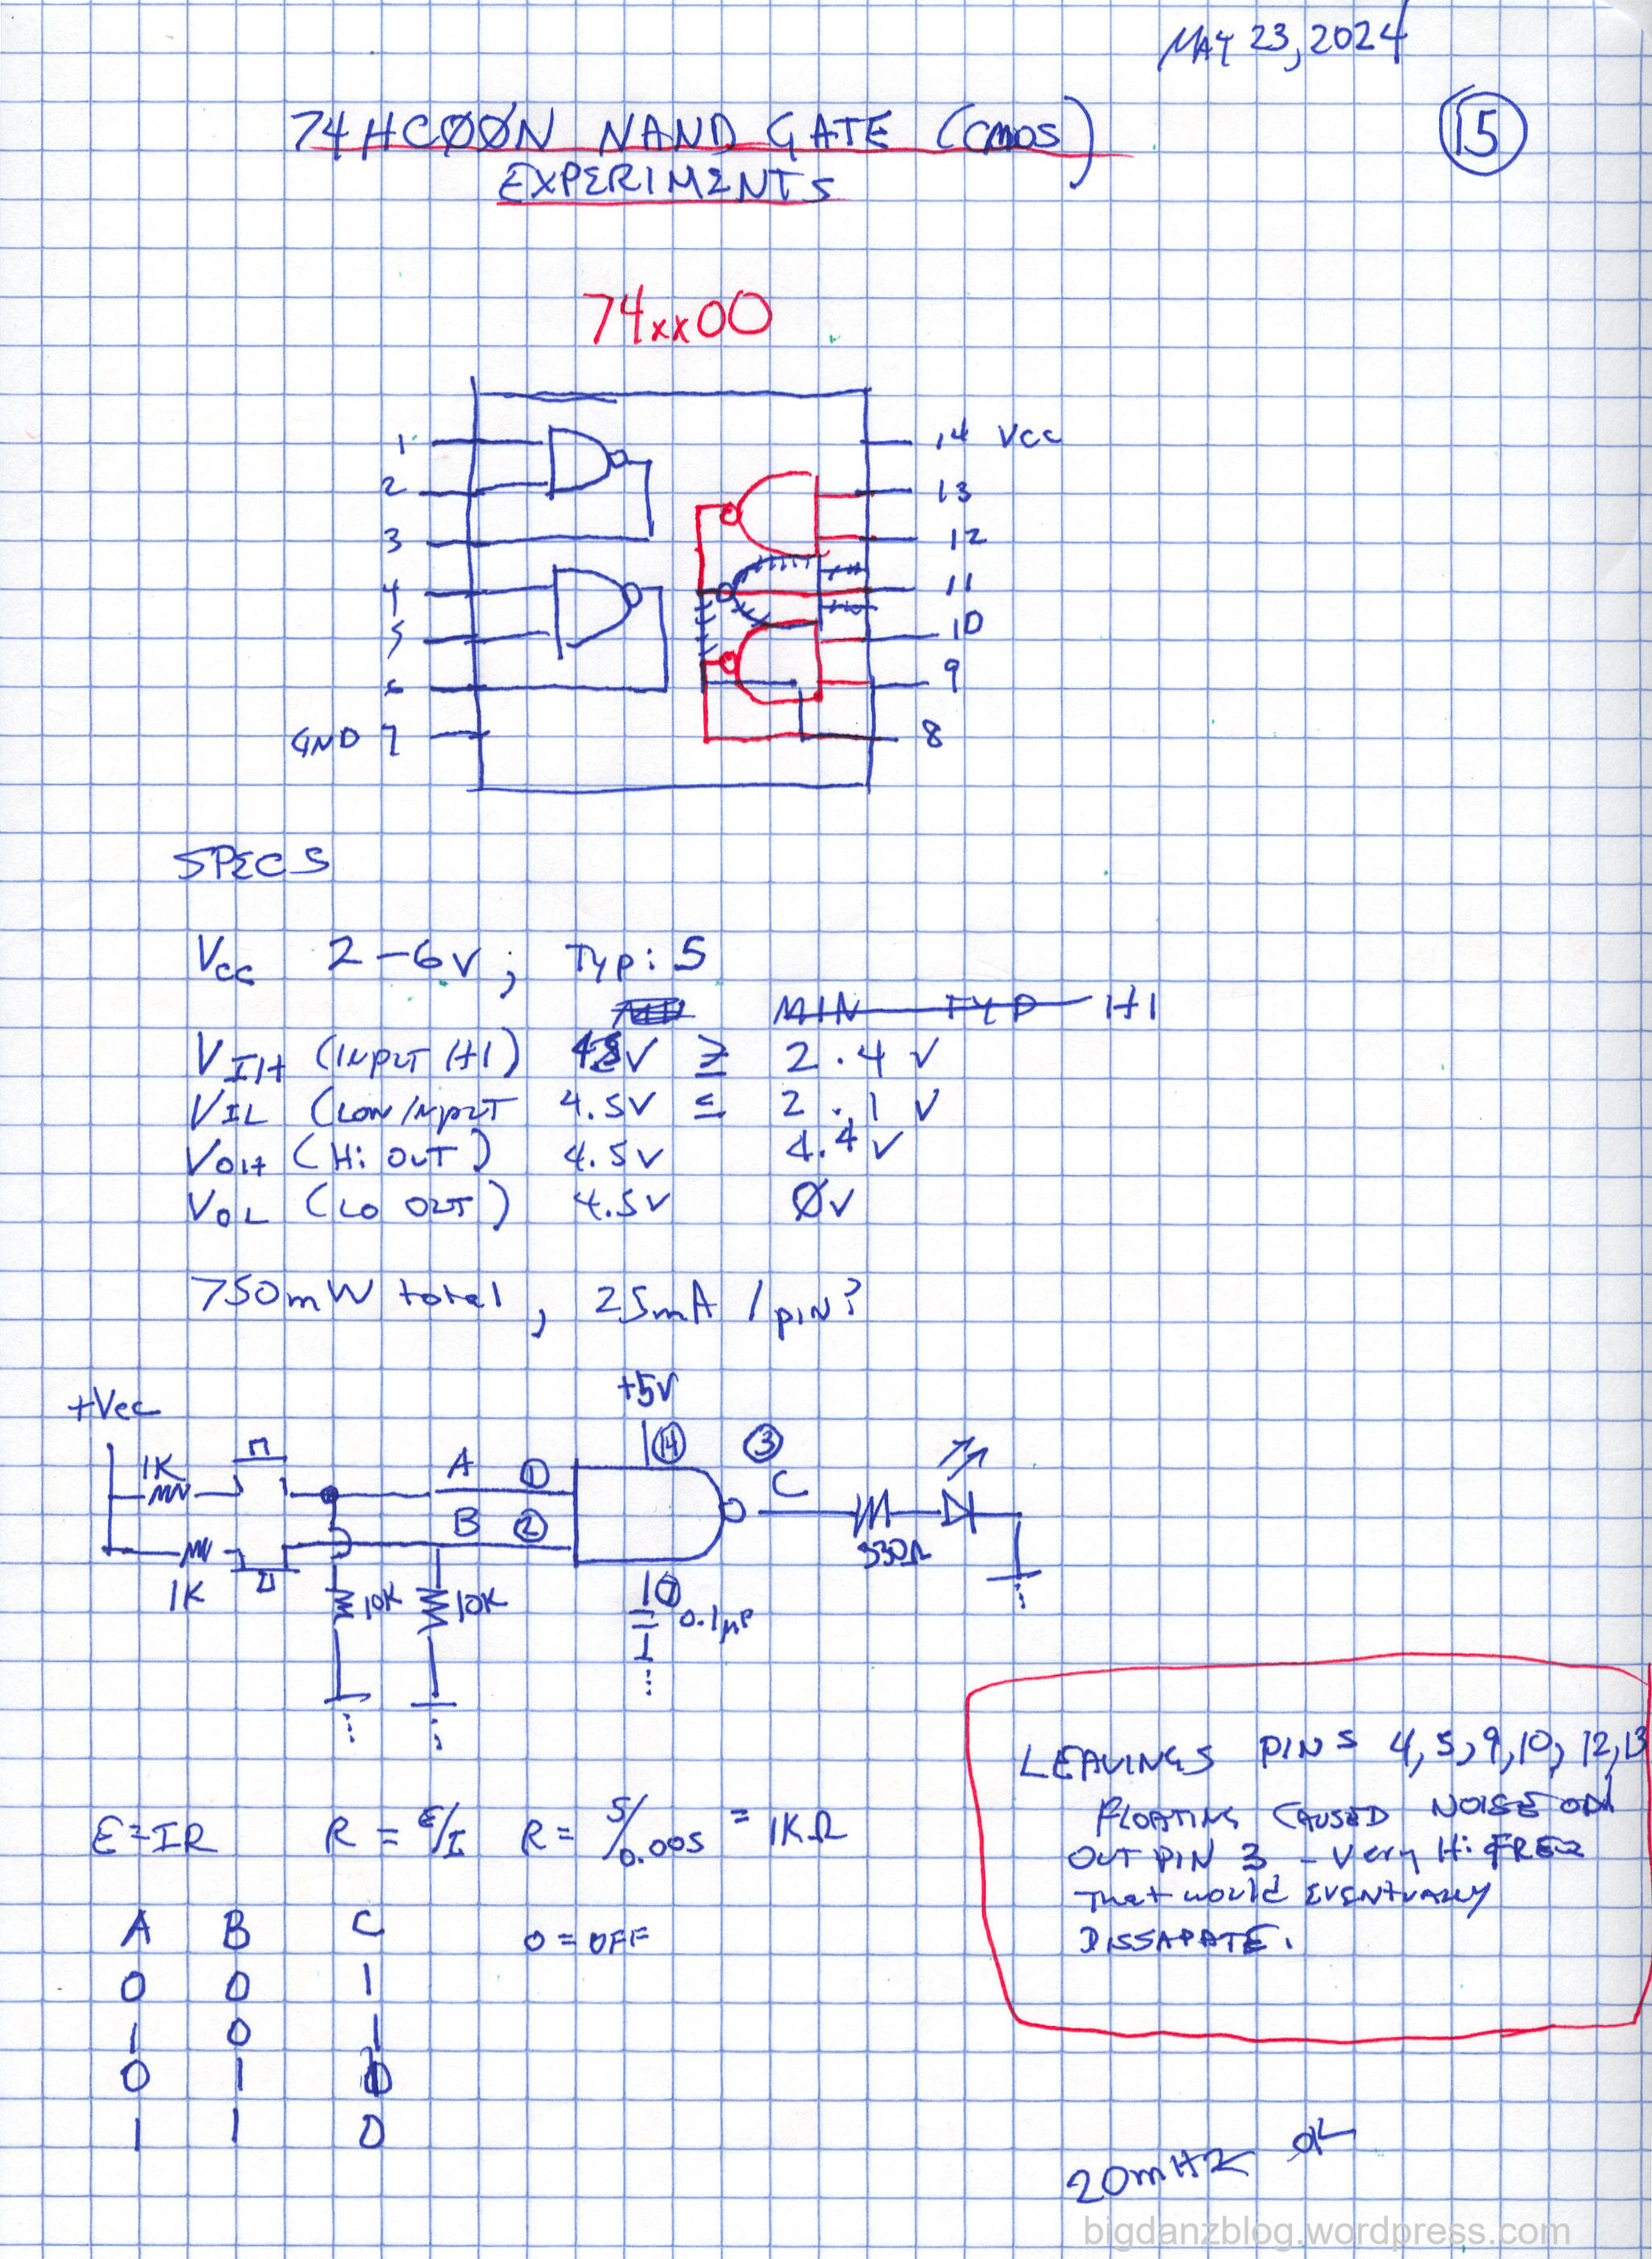 MAY 23, 2024
15
74HC00N NAND GATE (CMOS)
EXPERIMENTS
74xx00
1
2
3
4
5
6
GND 7
14 VCC
13
12
11
10
9
8
SPECS
Vcc 2-6V; Typ: 5
MIN TYP HI
VIH (INPUT HI) V ≥ 2.4 V
VIL (LOW INPUT 4.5V ≤ 2.1 V
VOH (Hi OUT) 4.5V 4.4V
VOL (LO OUT) 4.5V 0V
750mW total, 25mA / PIN?
+Vcc
+5V
14
3
1K
A 1
C
B 2
330Ω
1K
10K
10K
7
0.1µF
LEAVINGS PINS 4, 5, 9, 10, 12, 13
FLOATING CAUSED NOISE
OUT PIN 3 - Very Hi FREQ
That would EVENTUALLY
DISSAPATE.
E=IR R = E/I R = 5/0.005 = 1KΩ
A B C
0 = OFF
0 0 1
1 0 1
0 1
1 1 0
20mHZ OK
bigdanzblog.wordpress.com